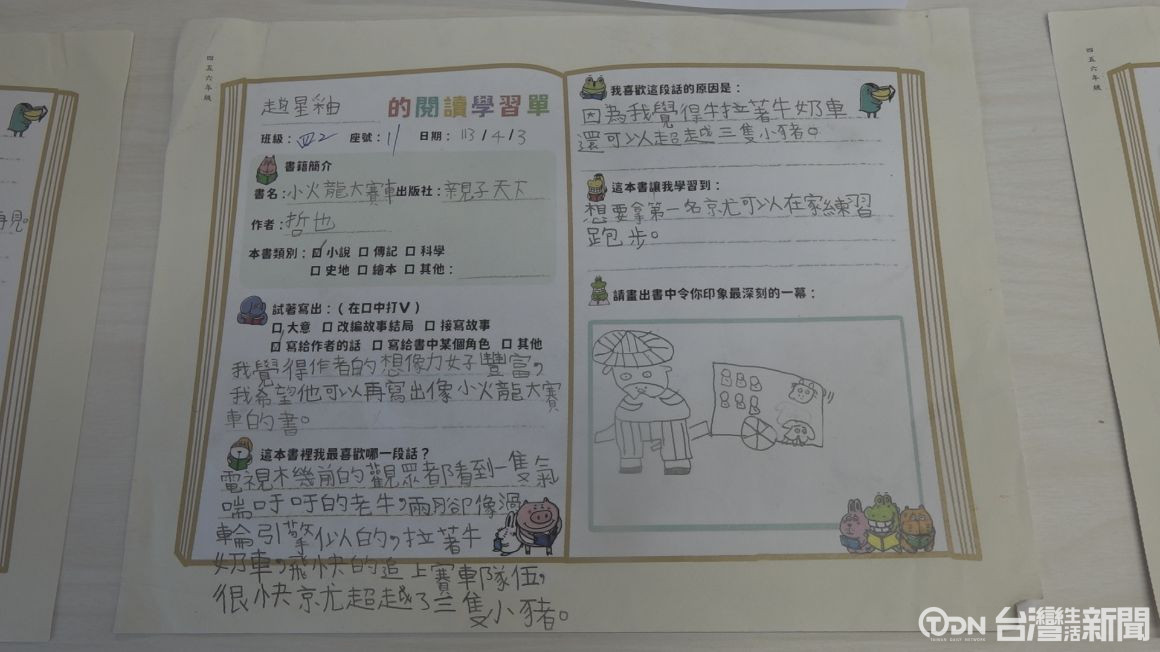 四五六年級
趙星釉 的閱讀學習單
班級：四2 座號：11 日期：113/4/3
書籍簡介
書名：小火龍大賽車 出版社：親子天下
作者：哲也
本書類別：☑小說 口傳記 口科學
口史地 口繪本 口其他：
試著寫出：(在口中打V)
口大意 口改編故事結局 口接寫故事
☑寫給作者的話 口寫給書中某個角色 口其他
我覺得作者的想像力好豐富，
我希望他可以再寫出像小火龍大賽
車的書。
這本書裡我最喜歡哪一段話？
電視機前的觀眾都看到一隻氣
喘吁吁的老牛，兩腳像渦
輪引擎似的，拉著牛
奶車，飛快的追上賽車隊伍，
很快就超越了三隻小豬。
我喜歡這段話的原因是：
因為我覺得牛拉著牛奶車
還可以超越三隻小豬。
這本書讓我學習到：
想要拿第一名就可以在家練習
跑步。
請畫出書中令你印象最深刻的一幕：
四五六年級
再見。
TDN 台灣生活新聞
TAIWAN DAILY NETWORK